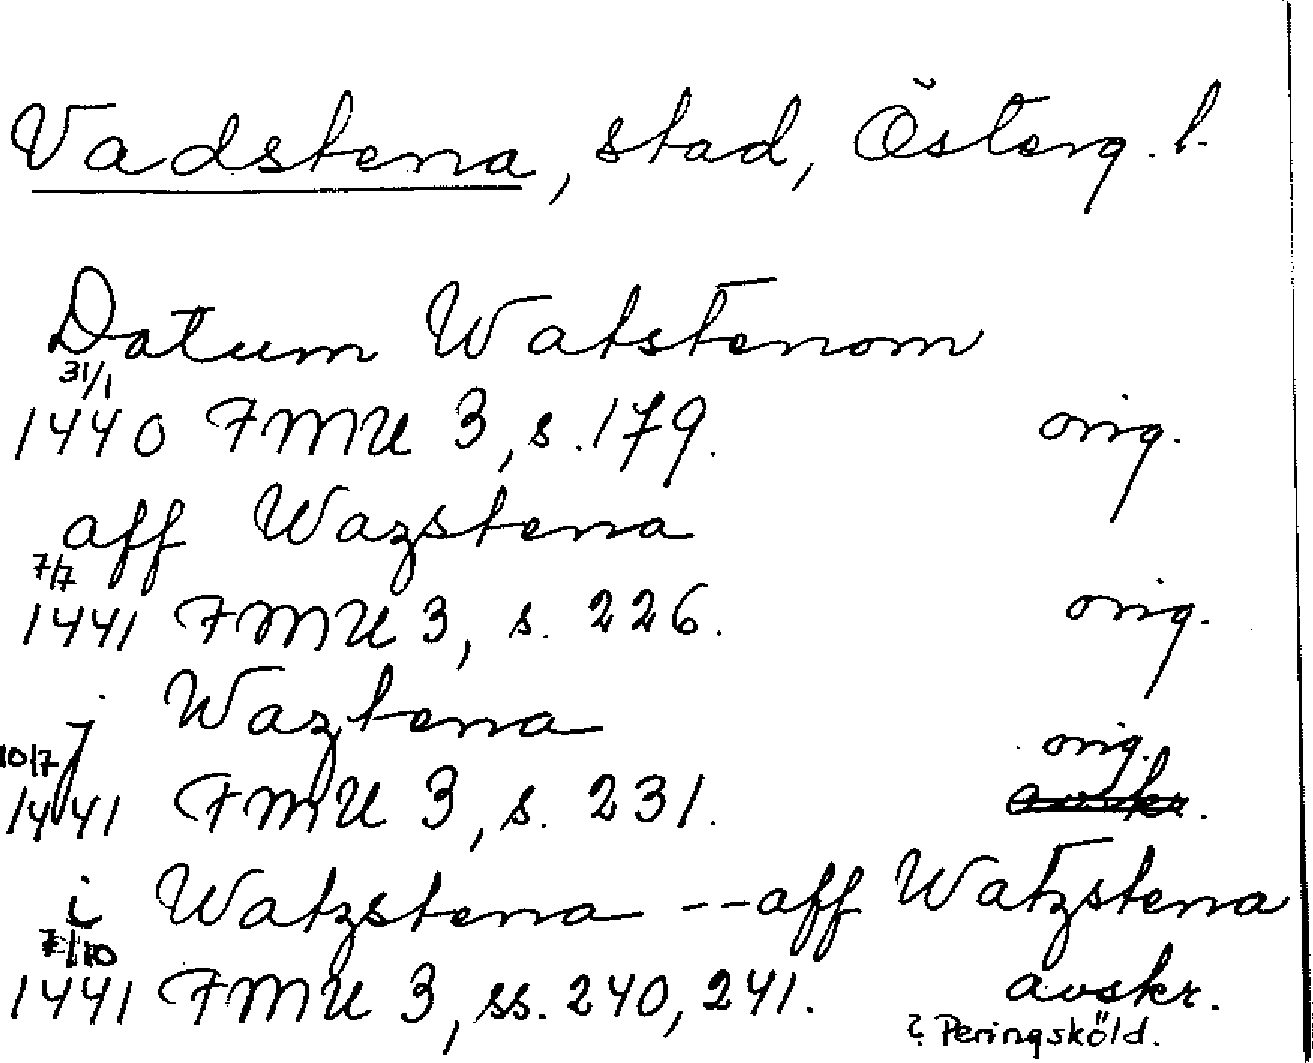 Vadstena, stad, Österg. l.
Datum Watstenom
31/1
1440 FMU 3, s. 179. orig.
aff Wazstena
7/7
1441 FMU 3, s. 226. orig.
j Waztena
10/7 orig.
1441 FMU 3, s. 231. avskr.
i Watzstena -- aff Watzstena
/10
1441 FMU 3, ss. 240, 241. avskr.
? Peringsköld.